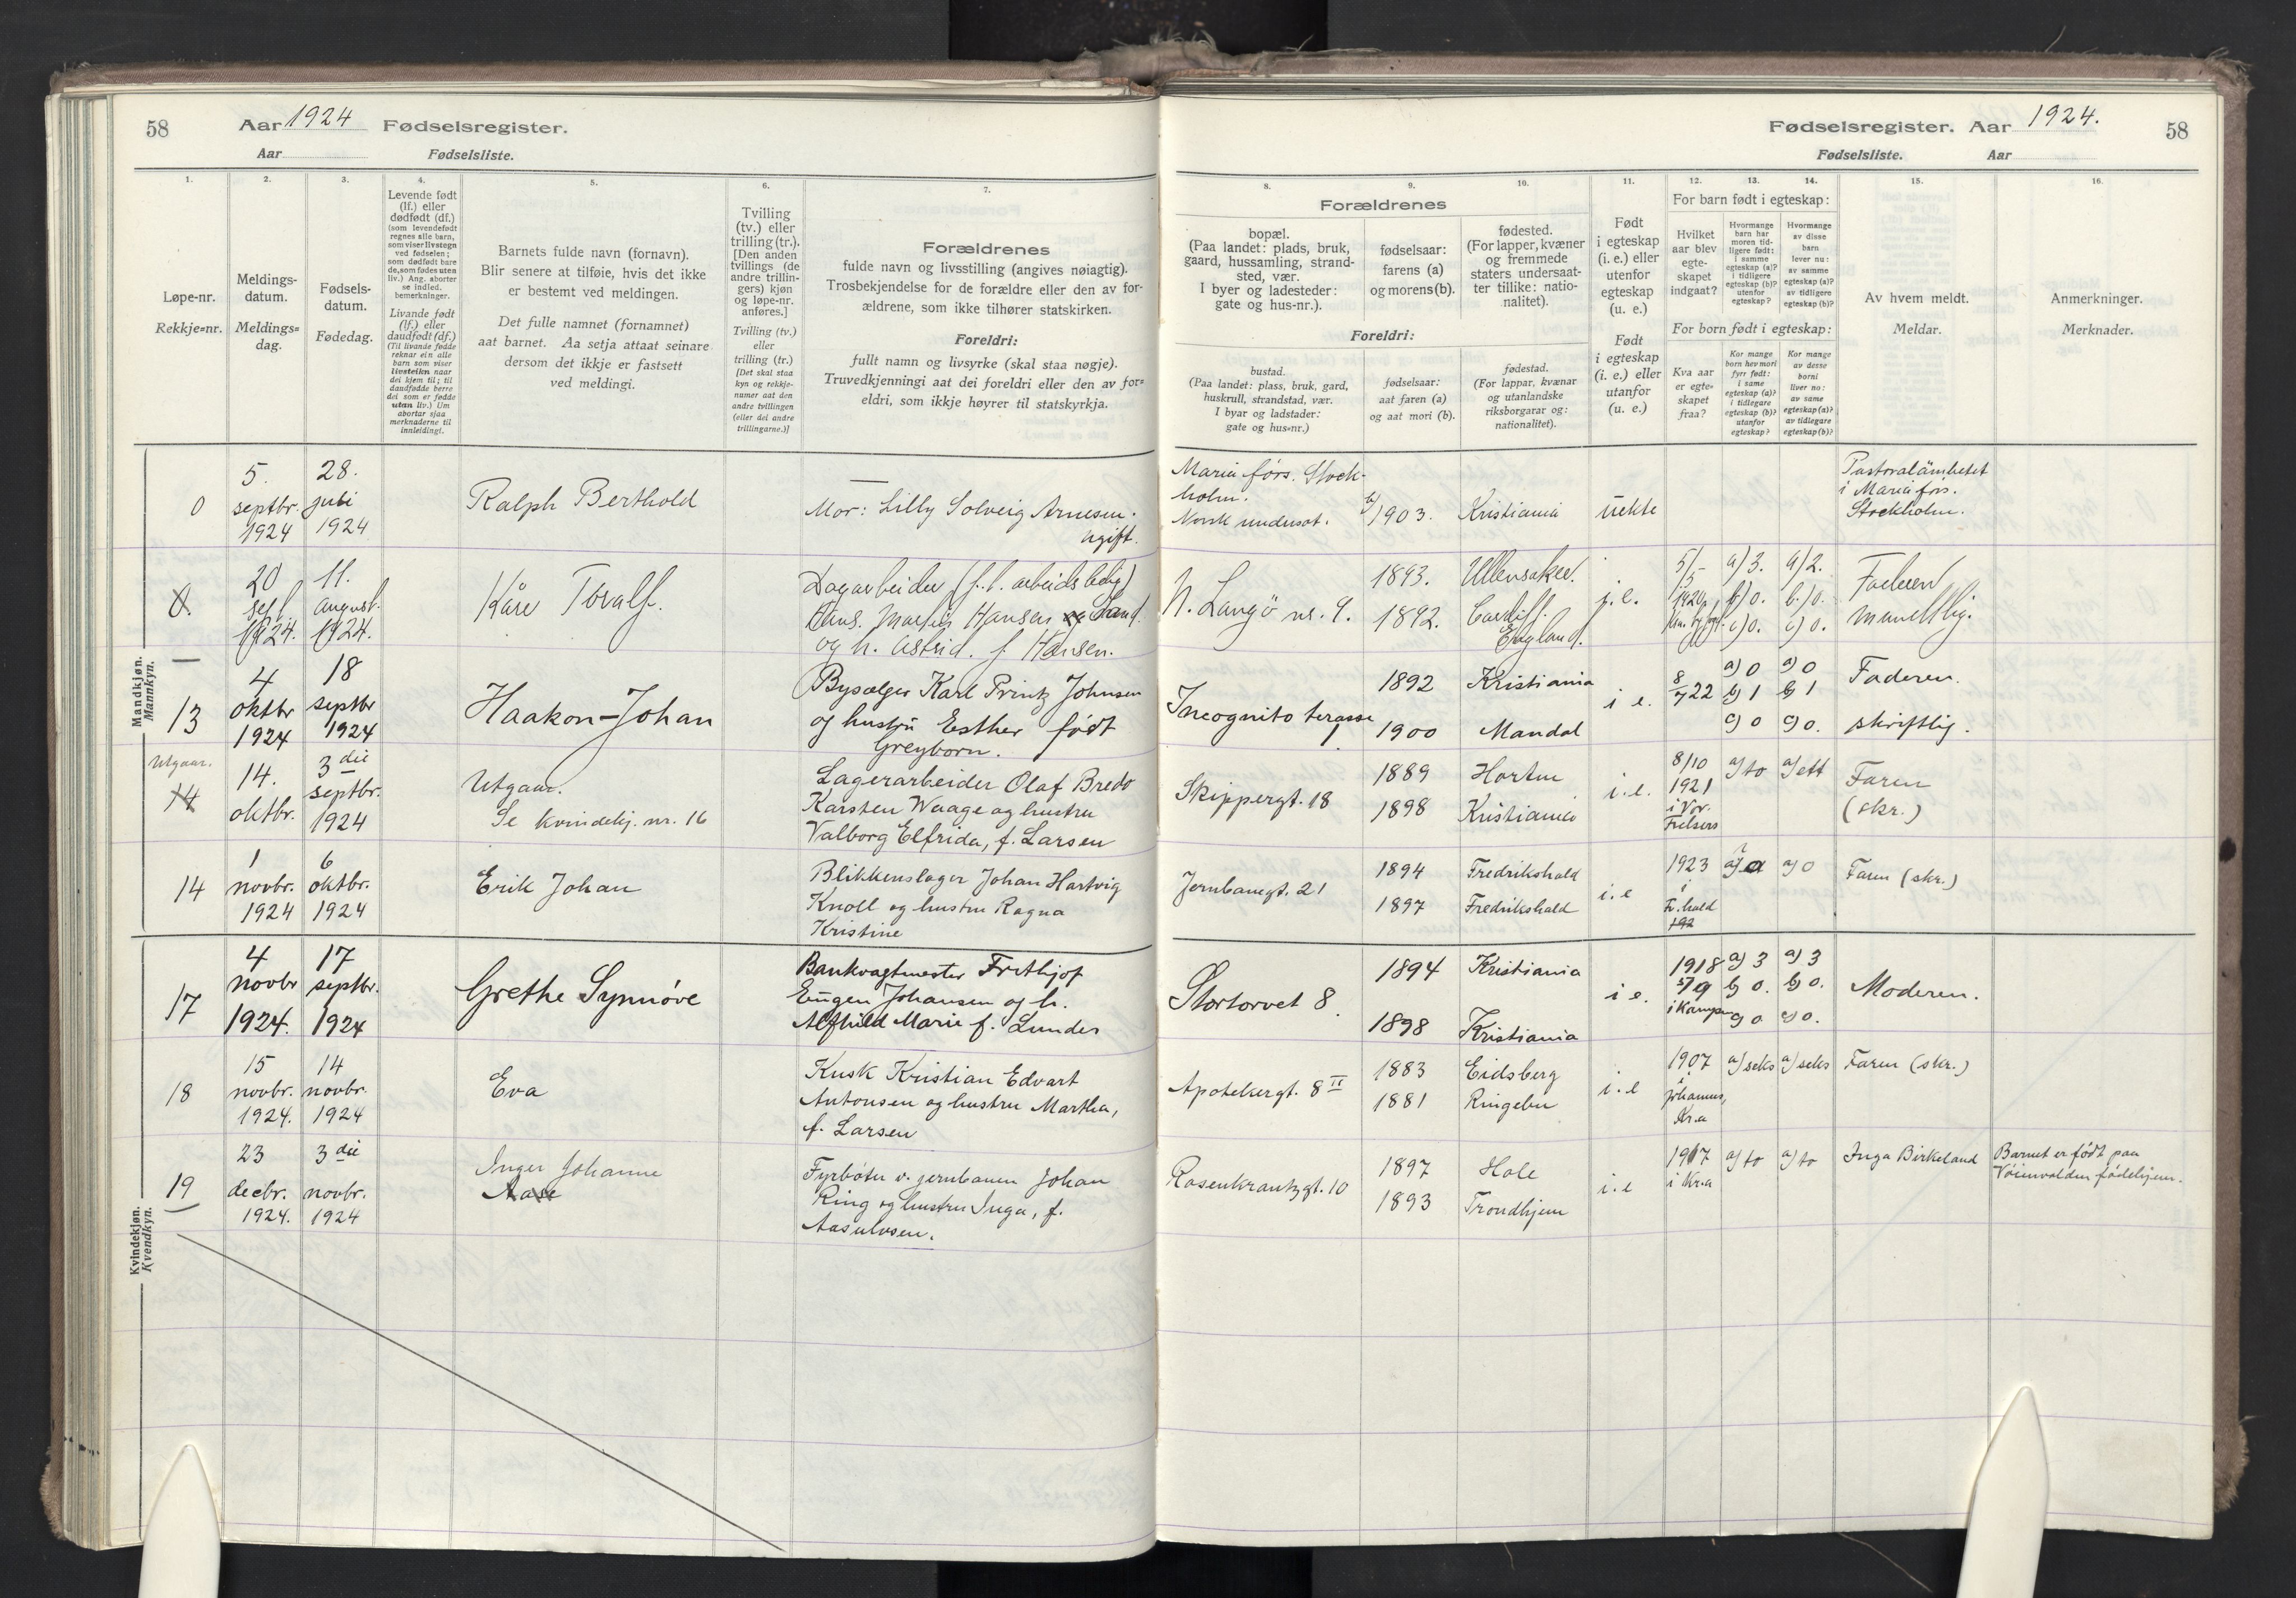 58
Aar 1924 Fødselsregister.
Aar Fødselsliste.
Fødselsregister. Aar 1924.
58
Fødselsliste. Aar
1.
Løpe-nr.
Rekkje=nr.
2.
Meldings-
datum.
Meldings=
dag.
3.
Fødsels-
datum.
Fødedag.
4.
Levende født
(lf.) eller
dødfødt (df.)
(som levendefødt
regnes alle barn,
som viser livstegn
ved fødselen;
som dødfødt bare
de, som fødes uten
liv.) Ang. aborter
se indled.
bemerkninger.
Livande født
(lf.) eller
daudfødt (df.)
(Til livande fødde
reknar ein alle
barn som viser
livsteikn naar
dei kjem til; til
daudfødde berre
dei som er fødde
utan liv.) Um
abortar sjaa
merknaderne til
innleidingi.
5.
Barnets fulde navn (fornavn).
Blir senere at tilføie, hvis det ikke
er bestemt ved meldingen.
Det fulle namnet (fornamnet)
aat barnet. Aa setja attaat seinare
dersom det ikkje er fastsett
ved meldingi.
6.
Tvilling
(tv.) eller
trilling (tr.).
[Den anden
tvillings (de
andre trillin-
gers) kjøn
og løpe-nr.
anføres.]
Tvilling (tv.)
eller
trilling (tr.)
[Det skal staa
kyn og rekkje-
numer aat den
andre tvillingen
(eller dei andre
trillingarne.)]
7.
Forældrenes
fulde navn og livsstilling (angives nøiagtig).
Trosbekjendelse for de forældre eller den av for-
ældrene, som ikke tilhører statskirken.
Foreldri:
fullt namn og livsyrke (skal staa nøgje).
Truvedkjenningi aat dei foreldri eller den av for=
eldri, som ikkje høyrer til statskyrkja.
8.
Forældrenes
bopæl.
(Paa landet: plads, bruk,
gaard, hussamling, strand-
sted, vær.
I byer og ladesteder:
gate og hus-nr.).
Foreldri:
bustad.
(Paa landet: plass, bruk, gard,
huskrull, strandstad, vær.
I byar og ladstader:
gate og hus=nr.)
9.
fødselsaar:
farens (a)
og morens (b).
fødselsaar:
aat faren (a)
og aat mori (b).
10.
fødested.
(For lapper, kvæner
og fremmede
staters undersaat-
ter tillike: natio-
nalitet).
fødestad.
(For lappar, kvænar
og utanlandske
riksborgarar og:
nationalitet).
11.
Født
i egteskap
(i. e.) eller
utenfor
egteskap
(u. e.)
Født
i egteskap
(i. e.) eller
utanfor
(u. e.)
For barn født i egteskap:
12.
Hvilket
aar blev
egte-
skapet
indgaat?
13.
Hvormange
barn har
moren tid-
ligere født:
i samme
egteskap (a)?
i tidligere
egteskap (b)?
utenfor
egteskap?
14.
Hvormange
av disse
barn
lever nu:
av samme
egteskap (a)?
av tidligere
egteskap (b)?
For born født i egteskap:
Kva aar
er egte-
skapet
fraa?
Kor mange
born hev mori
fyrr født:
i same
egteskap (a)?
i tidlegare
egteskap (b)?
utanfor
egteskap?
Kor mange
av desse
borni
liver no:
av same
egteskap (a)?
av tidlegare
egteskap (b)?
15.
Av hvem meldt.
Meldar.
16.
Anmerkninger.
Merknader.
Mandkjøn.
Mannkyn.
0
5.
septbr.
1924
28.
juli
1924
Ralph Berthold
Mor: Lilly Solveig Arnesen.
ugift.
Maria förs. Stock-
holm.
Norsk undersot.
b/1903.
Kristiania
uekte
Pastoralämbetet
i Maria förs.
Stockholm.
0.
20
sept.
1924.
11.
august.
1924.
Kåre Toralf.
Dagarbeider (f. t. arbeidsledig)
Hans Martin Hansen
og h. Astrid. f. Hansen.
N. Langö nr. 9.
1893.
1892.
Ullensaker.
Cardiff.
England.
i. e.
1920
a) 3.
b) 0.
c) 0.
a) 2.
b.) 0.
c) 0.
Faderen
mundtlig.
13
4
oktbr
1924
18
septbr
1924
Haakon-Johan
Bysælger Karl Printz Johnsen
og hustru Esther født
Greyborn.
Incognito terasse
1
1892
1900
Kristiania
Mandal
i e.
8/7 22
a) 0
b) 1
c) 0
a) 0
b) 1
c) 0.
Faderen.
skriftlig.
Utgaar.
14
14.
oktbr.
3 die
septbr.
1924
Utgaar.
Se kvindekj. nr. 16
Lagerarbeider Olaf Bredo
Karsten Waage og hustru
Valborg Elfrida, f. Larsen
Skippergt. 18
1889
1898
Horten
Kristiania
i. e.
8/10
1921
i Vor
Frelsers
a) to
a) ett
Faren
(skr.)
14
1
novbr.
1924
6
oktbr.
1924
Erik Johan
Blikkenslager Johan Hartvig
Knoll og hustru Ragna
Kristine
Jernbanegt. 21
1894
1897
Fredrikshald
Fredrikshald
i. e
1923
i
Fr.hald
a) 0
Faren (skr.)
Kvindekjøn.
Kvendkyn.
17
4
novbr
1924.
17
septbr.
1924
Grethe Synnöve
Bankvagtmester Frithjof
Eugen Johansen og h.
Alfhild Marie f. Lunder
Stortorvet 8.
1894
1898
Kristiania
Kristiania
i e.
1918
5/9
i Kampen
a) 3
b) 0.
c) 0
a) 3
b) 0.
c) 0.
Moderen.
18
15
novbr.
1924.
14
novbr.
1924
Eva
Kusk Kristian Edvart
Antonsen og hustru Martha,
f. Larsen
Apotekergt. 8 II
1883
1881
Eidsberg
Ringebu
i. e
1907
i
Johannes,
Kr.a
a) seks
a) seks
Faren (skr.)
19
23
decbr.
1924.
3 die
novbr.
1924
Inger Johanne
Aase
Fyrböter v. jernbanen Johan
Ring og hustru Inga, f.
Aasulvsen.
Rosenkrantzgt. 10
1897
1893
Hole
Trondhjem
i. e
1917
i Kr.a
a) to
a) to
Inga Birkeland
Barnet er født paa
Vöienvolden födehjem.